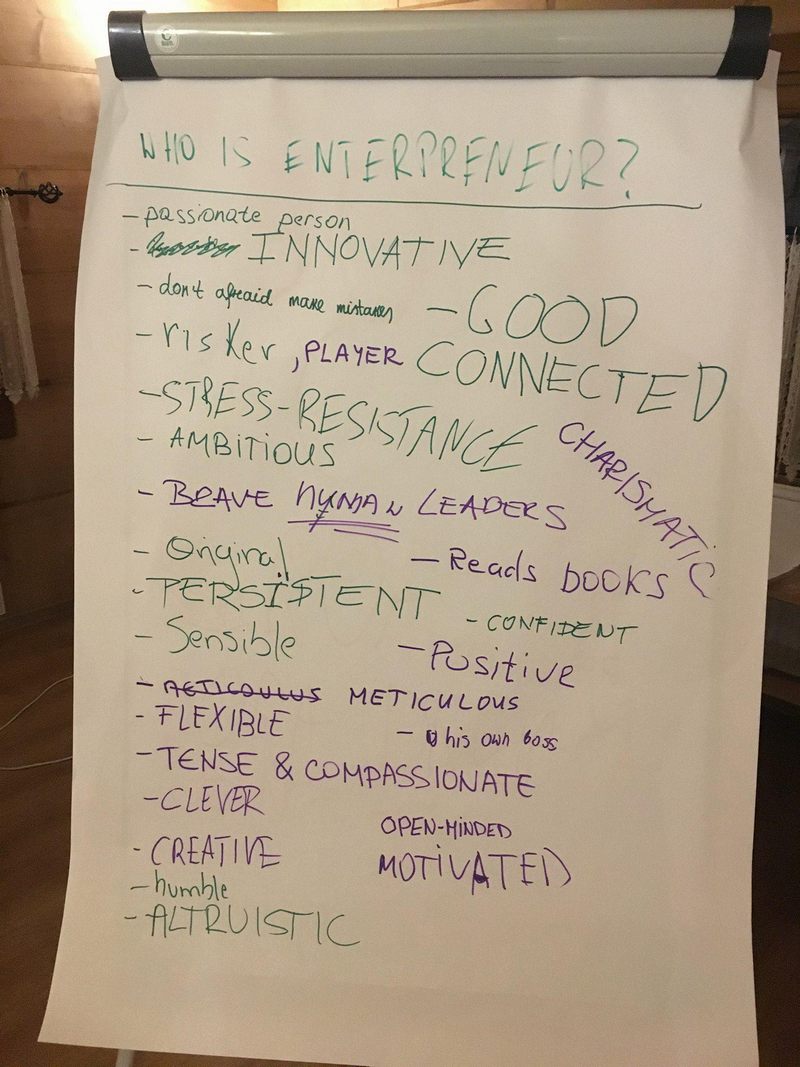 WHO IS ENTERPRENEUR?
- passionate person
- INNOVATIVE
- don't afreaid make mistakes
- GOOD CONNECTED
- risker, PLAYER
- STRESS-RESISTANCE
- AMBITIOUS
CHARISMATIC
- BRAVE HUMAN LEADERS
- Original
- Reads books
- PERSISTENT
- CONFIDENT
- Sensible
- Positive
- METICULOUS
- FLEXIBLE
- his own boss
- TENSE & COMPASSIONATE
- CLEVER
OPEN-MINDED
- CREATIVE
MOTIVATED
- humble
- ALTRUISTIC